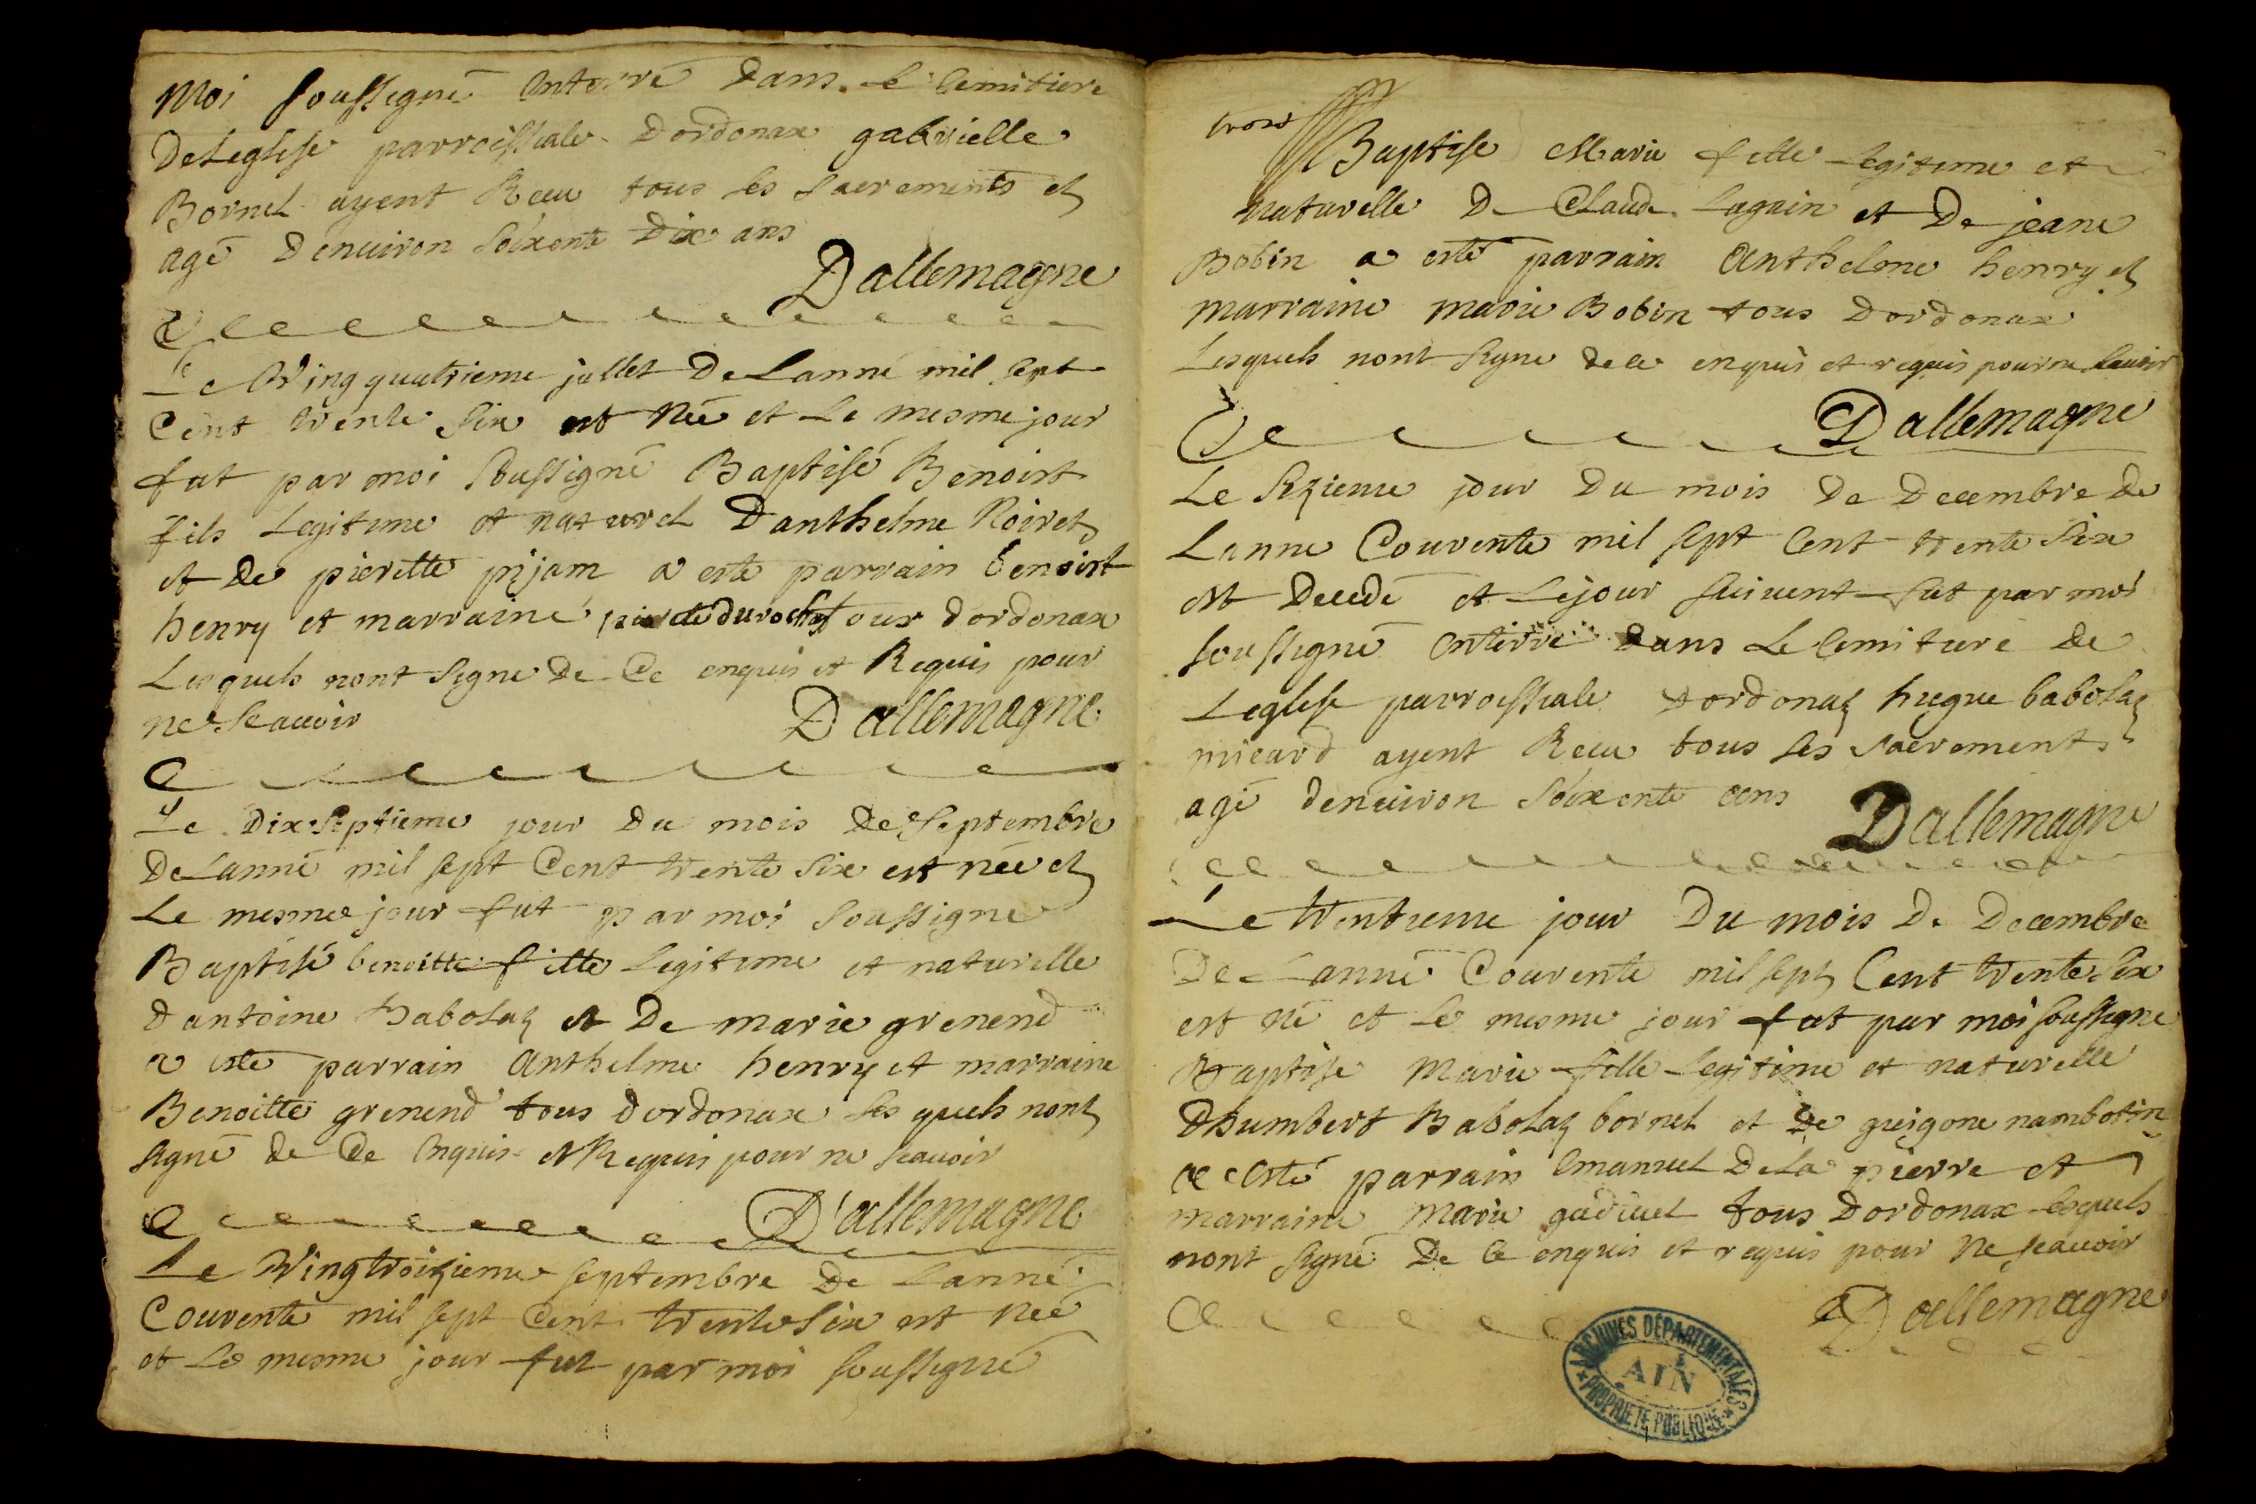 Moi soussigné enterré dans le cemitiere
de Leglise parroissiale dordonax gabrielle
Bornel ayent Receu tous les sacrements et
agé denuiron soixente dix ans
Dallemagne
Le Ving quatrieme jullet de Lanné mil sept
Cent trente six est née et Le mesme jour
fut par moi soussigné Baptisé Benoist
fils Legitime et naturel Danthelme Roiret
et de pierette pijam a esté parrain benoist
henry et marraine pierette duroch tous dordonax
Lesquels nont signe de Ce enquis et Requis pour
ne scauoir
Dallemagne
Le Dix septieme jour du mois de septembre
de Lanné mil sept Cent trente six est née et
Le mesme jour fut par moi soussigne
Baptisé benoitte fille Legitime et naturelle
dantoine babolaz et de marie grenend
a esté parrain anthelme henry et marraine
Benoitte grenend tous dordonax Les quels nont
signé de Ce enquis et Requis pour ne scauoir
D'allemagne
Le Ving troizieme septembre de Lanné
Couvente mil sept Cent trente six est née
et Le mesme jour fut par moi soussigné
trois
Baptise Marie fille Legitime et
naturelle De Claude Lagain et De jeane
Bobin a esté parrain anthelme henry et
marraine marie Bobin tous dordonax
Lesquels nont signe de ce enquis et requis pour ne scauoir
Dallemagne
Le sizieme jour Du mois De Decembre de
Lanne Couvente mil sept Cent trente six
est Decedé et Le jour suiuent fut par moi
soussigné enterré dans Le Cemitiere de
Leglise parroissiale dordonaz hugue babolaz
micard ayent Receu tous Les sacrements
agé denuiron soixente ans
Dallemagne
Le trentieme jour Du mois De Decembre
De Lanné Couvente mil sept Cent trente six
est né et Le mesme jour fut par moi soussigne
Baptise Marie fille Legitime et naturelle
dhumbert Babolaz bornel et de guigone nambotin
a esté parrain Emanuel De La pierre et
marraine Marie gudiuel tous Dordonax Lesquels
nont signé De Ce enquis et requis pour ne scauoir
Dallemagne
ARCHIVES DÉPARTEMENTALES
AIN
PROPRIÉTÉ PUBLIQUE